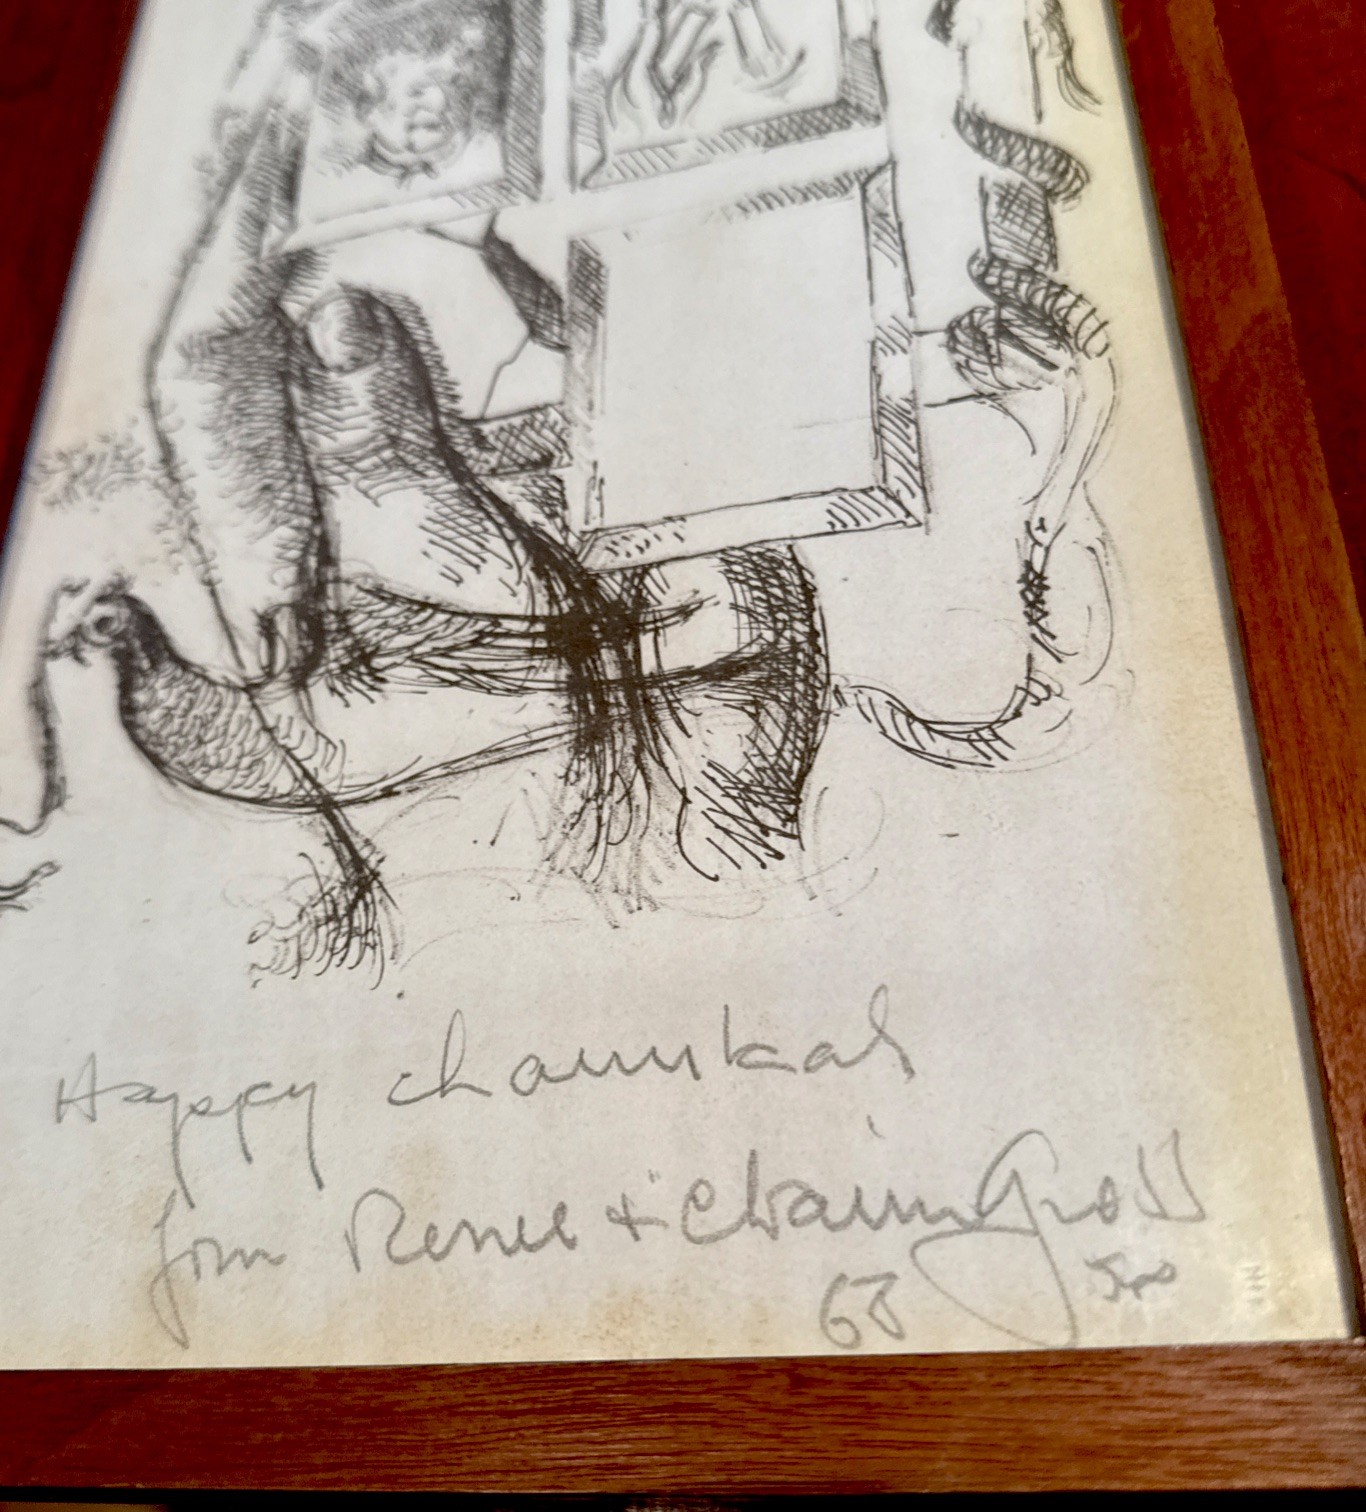 Happy chanukah
from Renee + Chaim Gross
68